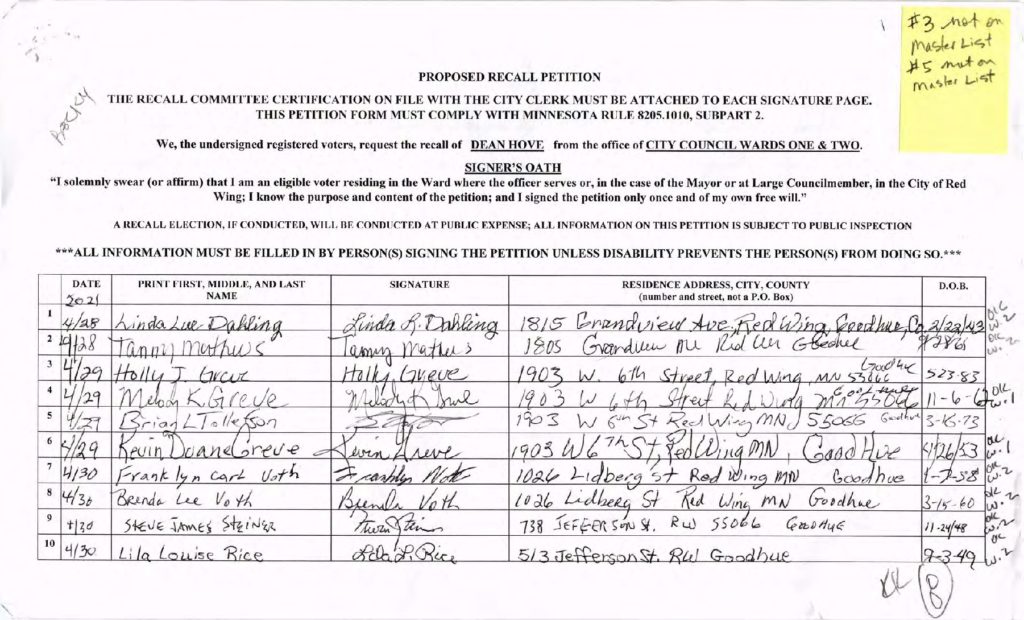 #3 not on
Master List
#5 not on
Master List
BECKY
PROPOSED RECALL PETITION
THE RECALL COMMITTEE CERTIFICATION ON FILE WITH THE CITY CLERK MUST BE ATTACHED TO EACH SIGNATURE PAGE.
THIS PETITION FORM MUST COMPLY WITH MINNESOTA RULE 8205.1010, SUBPART 2.
We, the undersigned registered voters, request the recall of DEAN HOVE from the office of CITY COUNCIL WARDS ONE & TWO.
SIGNER'S OATH
"I solemnly swear (or affirm) that I am an eligible voter residing in the Ward where the officer serves or, in the case of the Mayor or at Large Councilmember, in the City of Red
Wing; I know the purpose and content of the petition; and I signed the petition only once and of my own free will."
A RECALL ELECTION, IF CONDUCTED, WILL BE CONDUCTED AT PUBLIC EXPENSE; ALL INFORMATION ON THIS PETITION IS SUBJECT TO PUBLIC INSPECTION
***ALL INFORMATION MUST BE FILLED IN BY PERSON(S) SIGNING THE PETITION UNLESS DISABILITY PREVENTS THE PERSON(S) FROM DOING SO.***
DATE PRINT FIRST, MIDDLE, AND LAST SIGNATURE RESIDENCE ADDRESS, CITY, COUNTY D.O.B.
2021 NAME (number and street, not a P.O. Box)
1 4/28 Linda Lue Dahling Linda L. Dahling 1815 Grandview Ave, Red Wing, Goodhue, Co. 2/22/43 OK W.2
2 4/28 Tammy Mathews Tammy Mathews 1805 Grandview Red OK W.2
3 4/29 Holly J. Greve Holly Greve 1903 W. 6th Street, Red Wing, MN 55066 Goodhue 5-23-83
4 4/29 Melody K Greve Melody K 1903 W 6th Street Red Wing MN 55066 Goodhue 11-6-62 OK W.1
5 4/29 Brian L Tollefson 1903 W 6th St Red Wing MN, 55066 Goodhue 3-16-73
6 4/29 Kevin Duane Greve Kevin Greve 1903 W 6th St, Red Wing MN, Good Hue 4/26/53 OK W.1
7 4/30 Franklyn Carl Voth Franklyn Voth 1026 Lidberg St Red Wing MN Goodhue 1-7-58 OK W.2
8 4/30 Brenda Lee Voth Brenda Voth 1026 Lidberg St Red Wing MN Goodhue 3-15-60 OK W.2
9 4/30 STEVE JAMES STEINER 738 JEFFERSON St. RW 55066 GOODHUE 11-24/48 OK W.2
10 4/30 Lila Louise Rice Lila L. Rice 513 Jefferson St. RW Goodhue 9-3-49 OK W.2
8